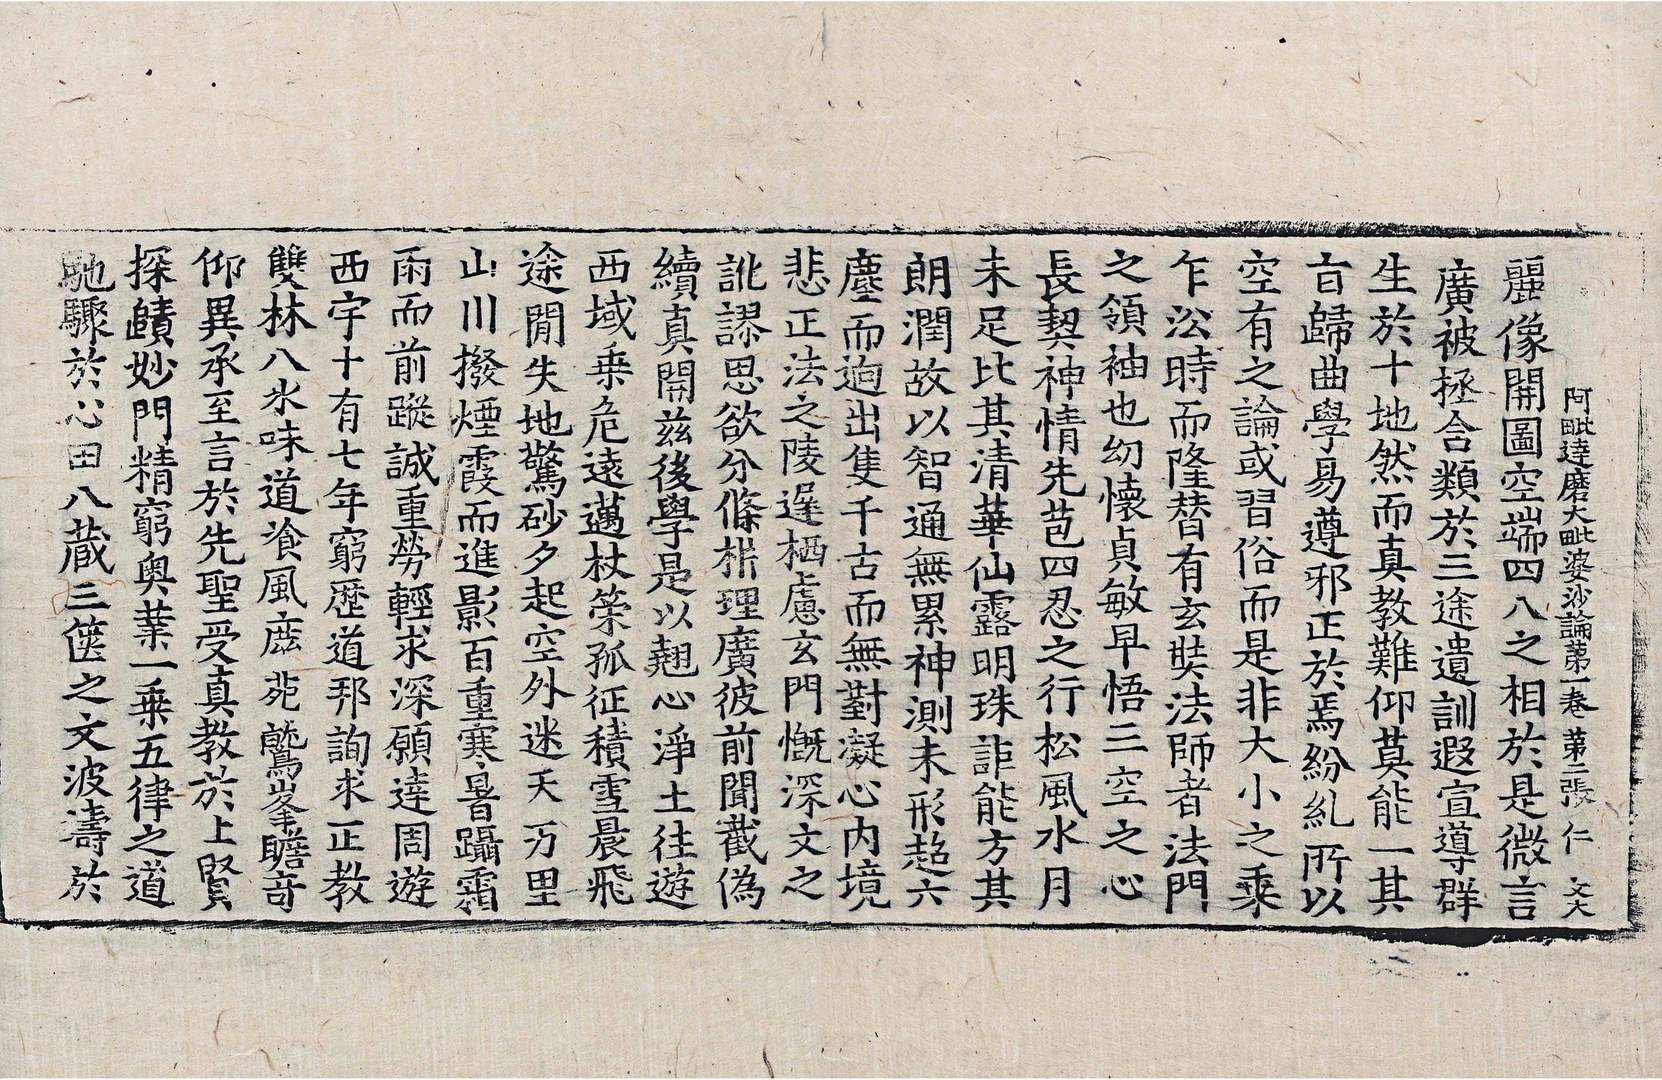 阿毗達磨大毗婆沙論第一卷 第二張 仁 文大
麗像開圖空端四八之相於是微言
廣被拯含類於三途遺訓遐宣導群
生於十地然而真教難仰莫能一其
旨歸曲學易遵邪正於焉紛糺所以
空有之論或習俗而是非大小之乘
乍訟時而隆替有玄奘法師者法門
之領袖也幼懷貞敏早悟三空之心
長契神情先苞四忍之行松風水月
未足比其清華仙露明珠詎能方其
朗潤故以智通無累神測未形超六
塵而逈出隻千古而無對凝心內境
悲正法之陵遲栖慮玄門慨深文之
訛謬思欲分條析理廣彼前聞截偽
續真開茲後學是以翹心淨土往遊
西域乘危遠邁杖策孤征積雪晨飛
途閒失地驚砂夕起空外迷天万里
山川撥煙霞而進影百重寒暑躡霜
雨而前蹤誠重勞輕求深願達周遊
西宇十有七年窮歷道邦詢求正教
雙林八水味道飡風鹿菀鷲峯瞻奇
仰異承至言於先聖受真教於上賢
探賾妙門精窮奧業一乘五律之道
馳驟於心田八藏三篋之文波濤於